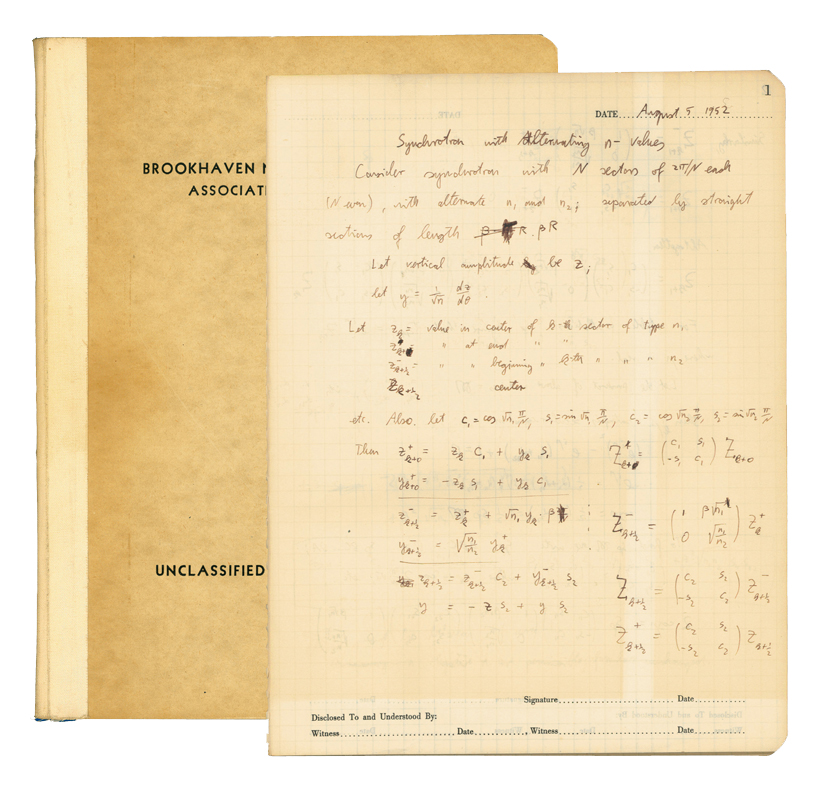 BROOKHAVEN N
ASSOCIAT
UNCLASSIFIED
1
DATE August 5 1952
Synchrotron with Alternating n-values
Consider synchrotron with N sectors of 2π/N each
(N even), with alternate n₁ and n₂; separated by straight
sections of length βR
Let vertical amplitude be z;
let y = 1/√n dz/dθ.
Let z_k = value in center of k-th sector of type n₁
" at end " "
" " beginning " " " " n₂
center
etc. Also let c₁ = cos √n₁ π/N, s₁ = sin √n₁ π/N, c₂ = cos √n₂ π/N, s₂ = sin √n₂ π/N
Then z⁺_{k+0} = z_k c₁ + y_k s₁ Z⁺_{k+0} = (c₁ s₁ / -s₁ c₁) Z_{k+0}
y⁺_{k+0} = -z_k s₁ + y_k c₁
z⁻_{k+½} = z⁺_k + √n₁ y_k · β ; Z⁻_{k+½} = (1 β√n₁ / 0 √n₁/n₂) Z⁺_k
y⁻_{k+½} = √n₁/n₂ y⁺_k
z_{k+½} = z⁻_{k+½} c₂ + y⁻_{k+½} s₂ Z_{k+½} = (c₂ s₂ / -s₂ c₂) Z⁻_{k+½}
y = -z s₂ + y s₂
Z⁺_{k+½} = (c₂ s₂ / -s₂ c₂) Z_{k+½}
Signature Date
Disclosed To and Understood By:
Witness Date , Witness Date